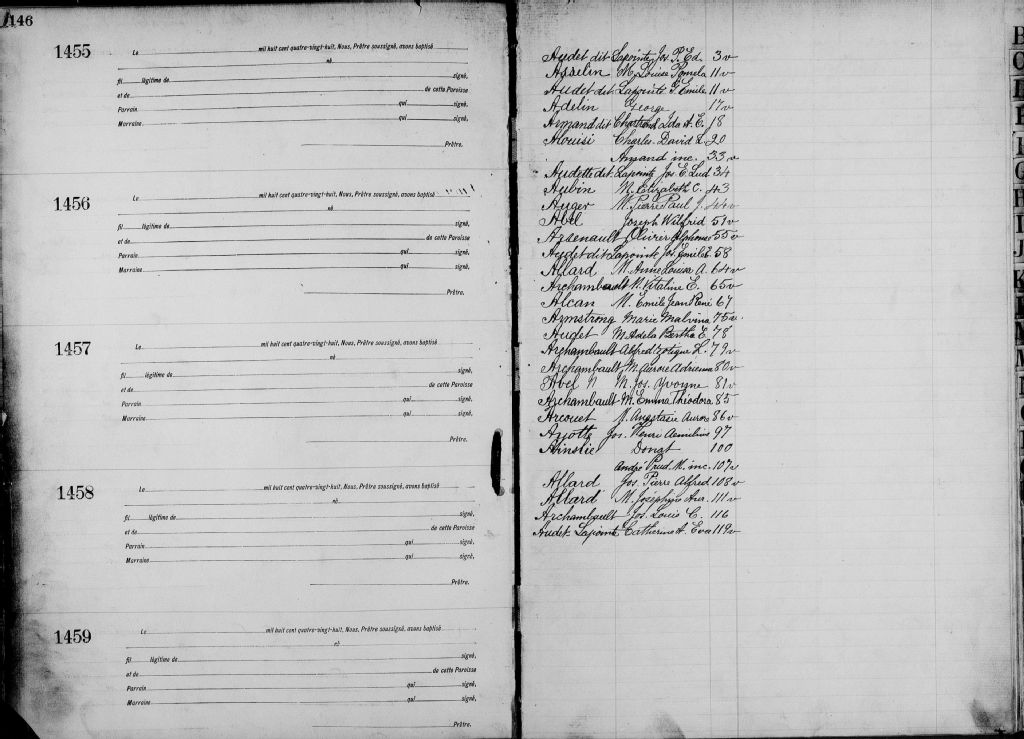 146
1455
Le mil huit cent quatre-vingt-huit, Nous, Prêtre soussigné, avons baptisé
né
fil légitime de signé,
et de de cette Paroisse
Parrain qui signé,
Marraine qui signé,
Prêtre.
1456
Le mil huit cent quatre-vingt-huit, Nous, Prêtre soussigné, avons baptisé
né
fil légitime de signé,
et de de cette Paroisse
Parrain qui signé,
Marraine qui signé,
Prêtre.
1457
Le mil huit cent quatre-vingt-huit, Nous, Prêtre soussigné, avons baptisé
né
fil légitime de signé,
et de de cette Paroisse
Parrain qui signé,
Marraine qui signé,
Prêtre.
1458
Le mil huit cent quatre-vingt-huit, Nous, Prêtre soussigné, avons baptisé
né
fil légitime de signé,
et de de cette Paroisse
Parrain qui signé,
Marraine qui signé,
Prêtre.
1459
Le mil huit cent quatre-vingt-huit, Nous, Prêtre soussigné, avons baptisé
né
fil légitime de signé,
et de de cette Paroisse
Parrain qui signé,
Marraine qui signé,
Prêtre.
Audet dit Lapointe Jos. P. Ed. 3v
Asselin M. Louise Pomela 11v
Audet dit Lapointe Emile 11v
Adelin George 17v
Armand dit Chartrand Ida A. E. 18
Alouisi Charles David L. 20
Amand inc. 33v
Audette dit Lapointe Jos. E. Lud 34
Aubin M. Elizabeth C. 43
Auger M. Pierre Paul J. 44v
Abel Joseph Wilfrid 51v
Arsenault Olivier Alphonse 55v
Audet dit Lapointe Jos. Emile 58
Allard M. Anne Louisa A. 64v
Archambault M. Vitaline E. 65v
Alcan M. Emile Jean René 67
Armstrong Marie Malvina 75v
Audet M. Adela Bertha E. 78
Archambault Alfred Zotique L. 79v
Archambault M. Aurore Adrienne 80v
Abel M. Jos. Yvonne 81v
Archambault M. Emma Théodora 85
Arcouet M. Anastasie Aurore 86v
Ayotte Jos. Henri Aemilius 97
Ainslie Donat 100
André Prud. M. inc. 107v
Allard Jos. Pierre Alfred 108v
Allard M. Joséphine 111v
Archambault Jos. Louis C. 116
Audet Lapointe Catherine A. Eva 119v